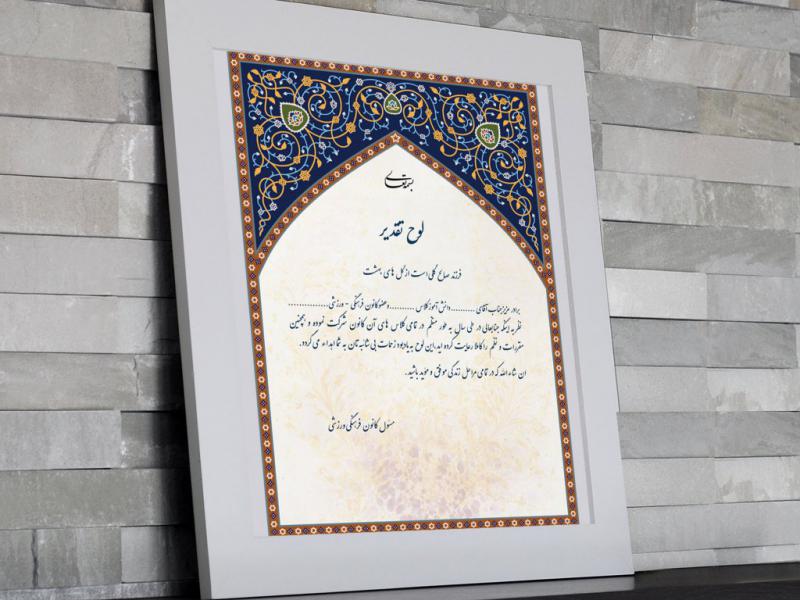 بسمه تعالی
لوح تقدیر
فرزند صالح گلی است از گل های بهشت
برادر عزیز جناب آقای .......... دانش آموز کلاس .......... و عضو کانون فرهنگی - ورزشی ...............
نظر به اینکه جنابعالی در طی سال به طور منظم در تمامی کلاس های آن کانون شرکت نموده و همچنین
مقررات و نظم را کاملا رعایت کرده اید، این لوح به یادبود زحمات بی شائبه تان به شما اهداء می گردد.
ان شاء الله که در تمامی مراحل زندگی موفق و موید باشید.
مسئول کانون فرهنگی ورزشی